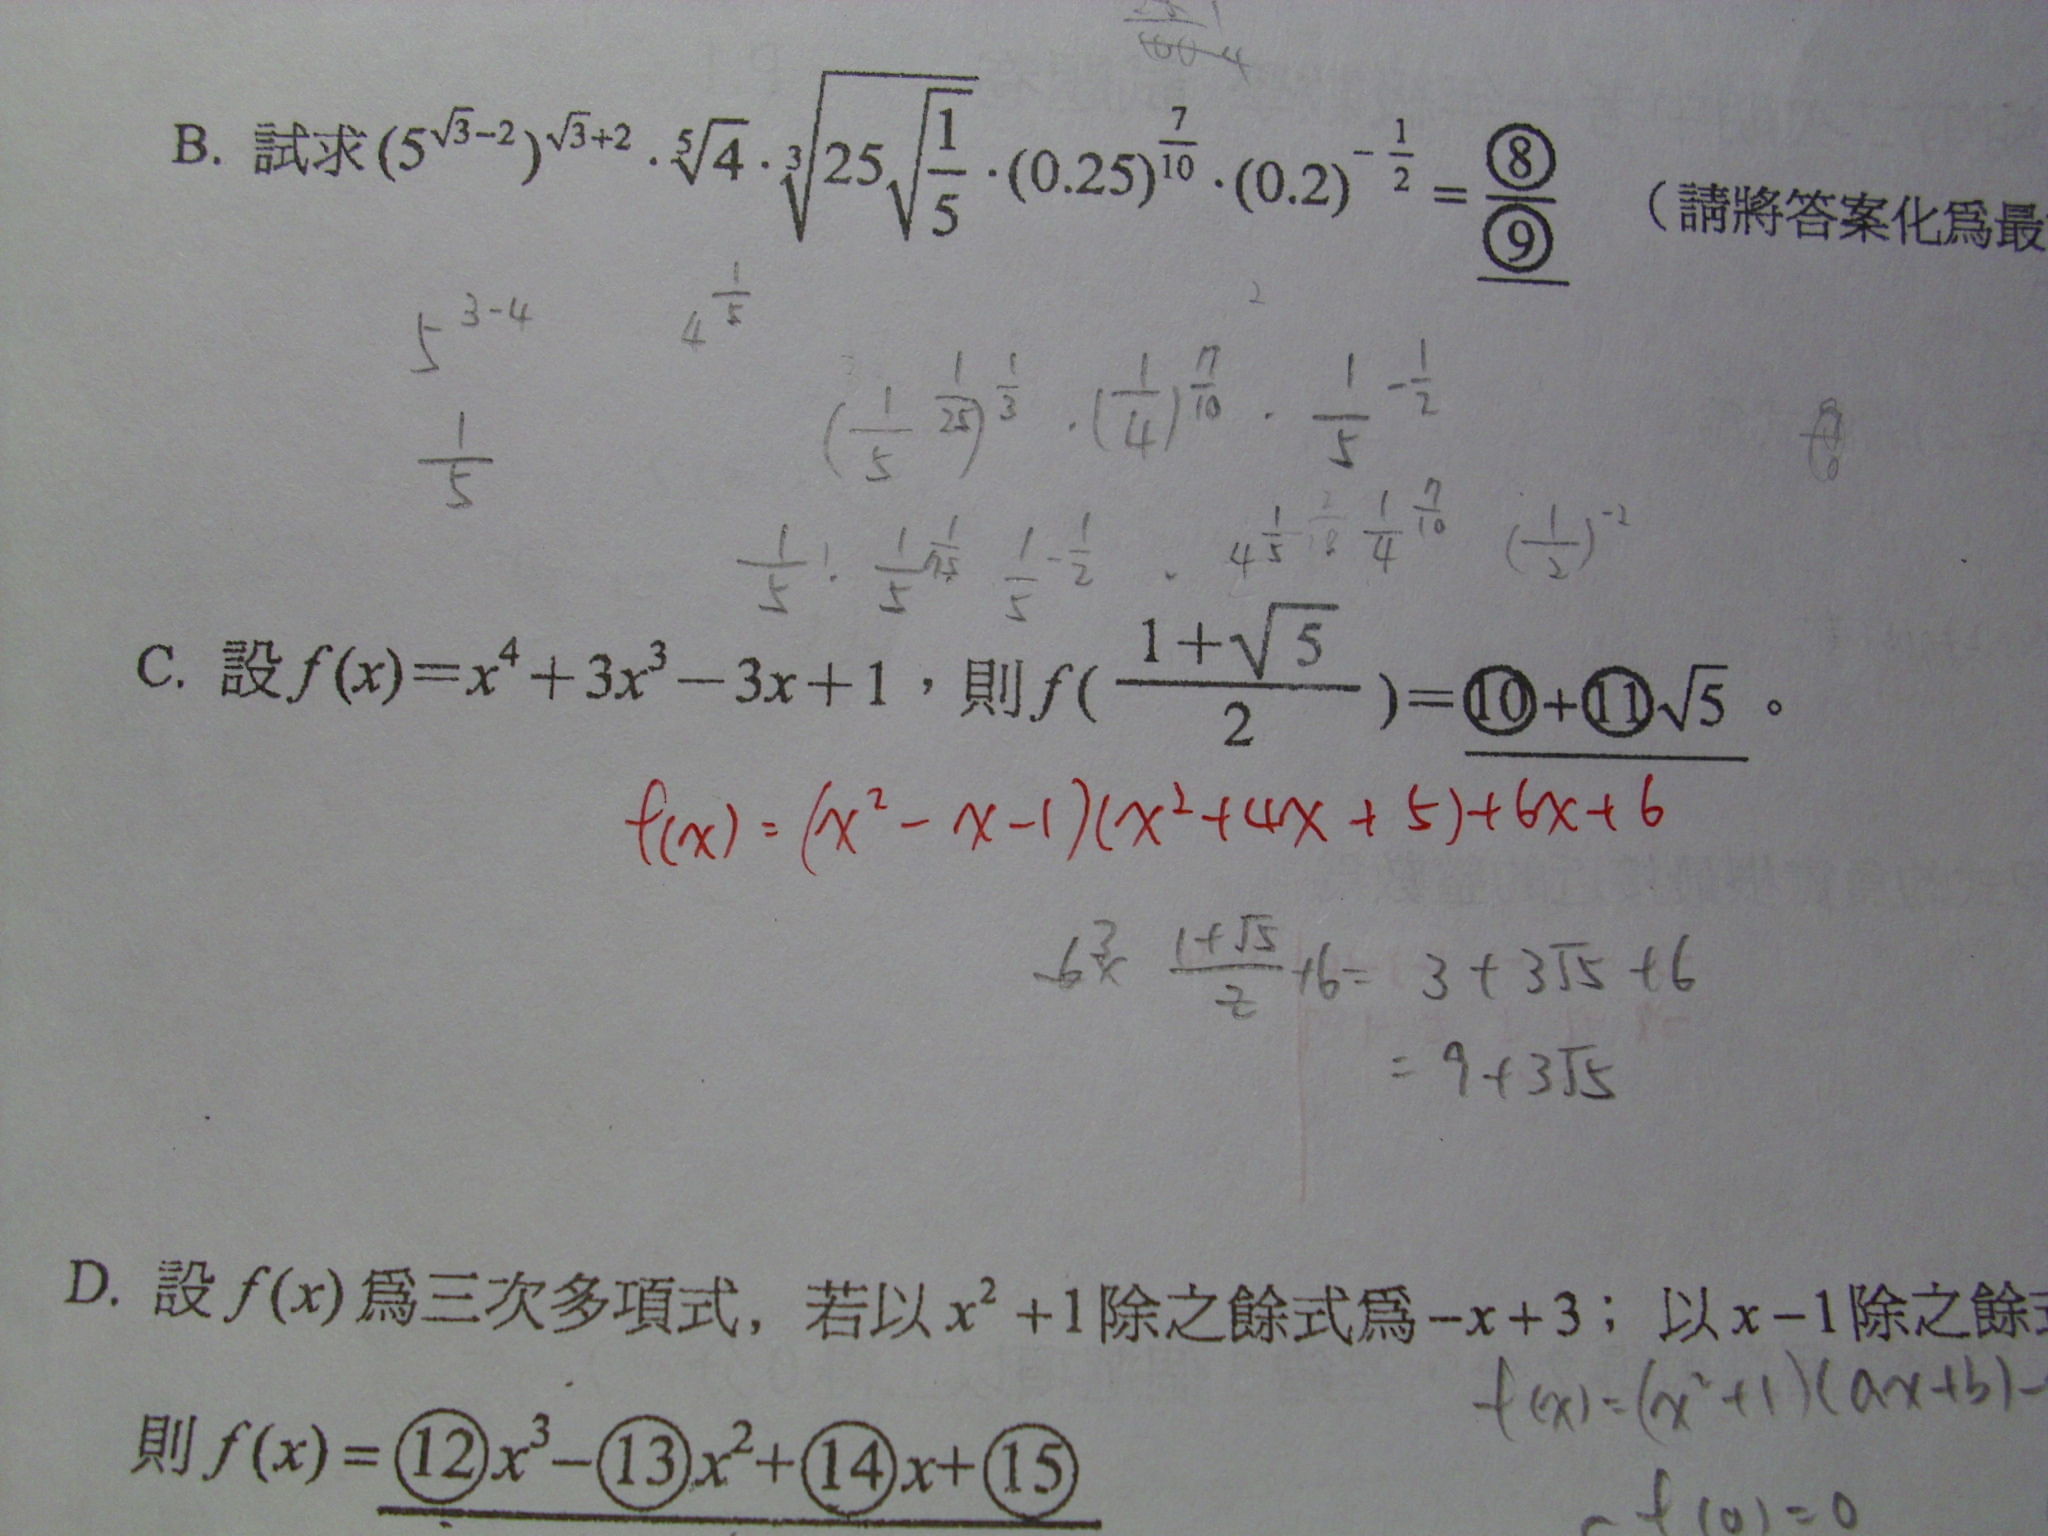 B. 試求 (5^{√3-2})^{√3+2} · ⁵√4 · ³√(25√(1/5)) · (0.25)^{7/10} · (0.2)^{-1/2} = ⑧/⑨ （請將答案化為最
5^{3-4} 4^{1/5}
1/5 (1/5^{1/25})^{1/3} · (1/4)^{7/10} · 1/5^{-1/2}
1/5^{1} · 1/5 1/5^{-1/2} · 4^{1/5} 1/4^{7/10} (1/2)^{-2}
C. 設 f(x)=x⁴+3x³-3x+1，則 f((1+√5)/2)=⑩+⑪√5。
f(x)=(x²-x-1)(x²+4x+5)+6x+6
6× (1+√5)/2 +6= 3+3√5+6
= 9+3√5
D. 設 f(x) 爲三次多項式, 若以 x²+1除之餘式爲-x+3；以 x-1除之餘式
f(x)=(x²+1)(ax+b)-
則 f(x)=⑫x³-⑬x²+⑭x+⑮
f(0)=0